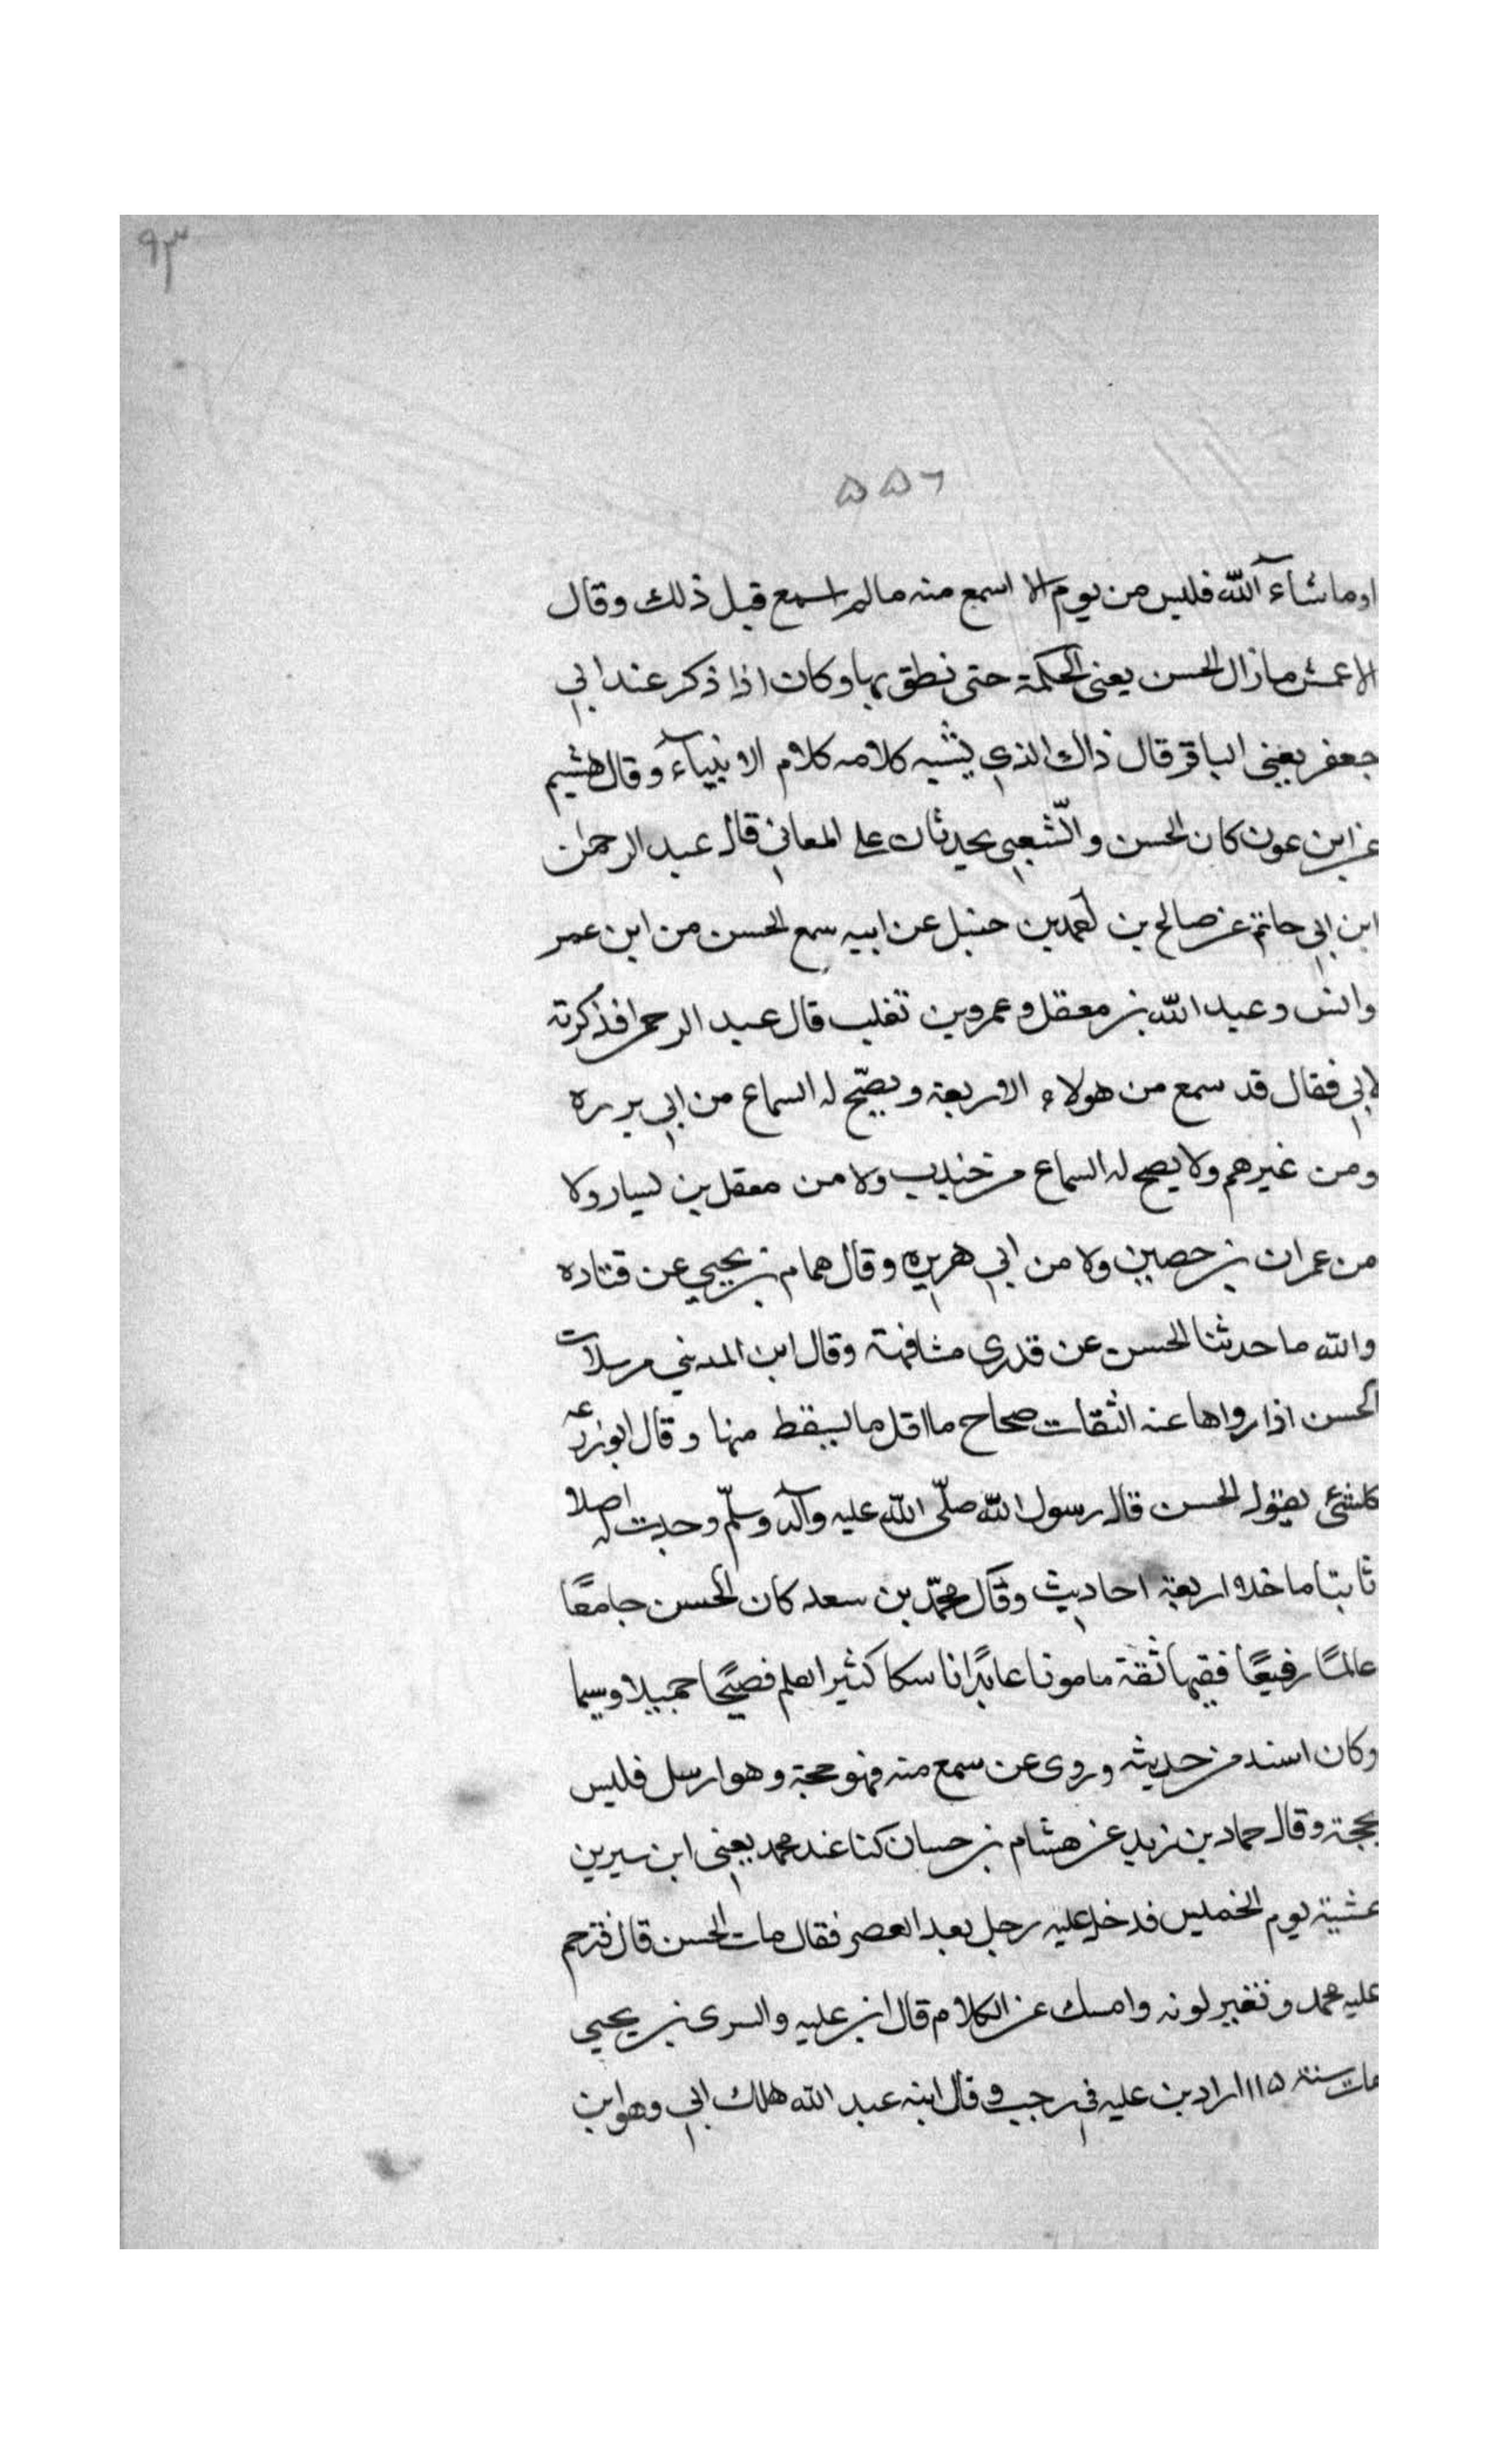 ٩٣
٥٥٦
او ماشآء الله فليس من يوم الا اسمع منه مالم اسمع قبل ذلك وقال
الاعمش مازال الحسن يعنى الحكمة حتى نطق بها وكان اذا ذكر عند ابي
جعفر يعني الباقر قال ذاك الذي يشبه كلامه كلام الانبيآء وقال هشيم
عن ابن عون كان الحسن والشّعبي يحدثان على المعاني قال عبد الرحمان
ابن ابي حاتم عن صالح بن احمد بن حنبل عن ابيه سمع الحسن من ابن عمر
وانس وعبد الله بن معقل وعمرو بن تغلب قال عبد الرحمن فذكرته
لابي فقال قد سمع من هولاء الاربعة ويصّح له السماع من ابي برره
ومن غيرهم ولا يصح له السماع من خندب ولا من معقل بن يسار ولا
من عمران بن حصين ولا من ابي هريره وقال همام بن يحيي عن قتاده
والله ما حدثنا الحسن عن قدري مشافهة وقال ابن المديني مرسلات
الحسن اذا رواها عنه الثقات صحاح ما اقل ما يسقط منها وقال ابو زرعه
كلشئ يقول الحسن قال رسول الله صلّى الله عليه وآله وسلّم وجدت له اصلا
ثابتا ما خلا اربعة احاديث وقال محمّد بن سعد كان الحسن جامعًا
عالمًا رفيعًا فقيها ثقة مامونا عابدًا ناسكا كثير العلم فصيحًا جميلا وسيما
وكان اسند من حديثه وروى عن سمع منه فهو حجة وهو ارسل فليس
بحجة وقال حماد بن زيد عن هشام بن حسان كنا عند محمد يعني ابن سيرين
عشية يوم الخميس فدخل عليه رجل بعد العصر فقال مات الحسن قال فترحم
عليه محمد وتغير لونه وامسك عن الكلام قال ابن عليه والسرى بن يحيي
مات سنة ١١٥ اراد بن عليه في رجب وقال ابنه عبد الله هلك ابي وهو ابن